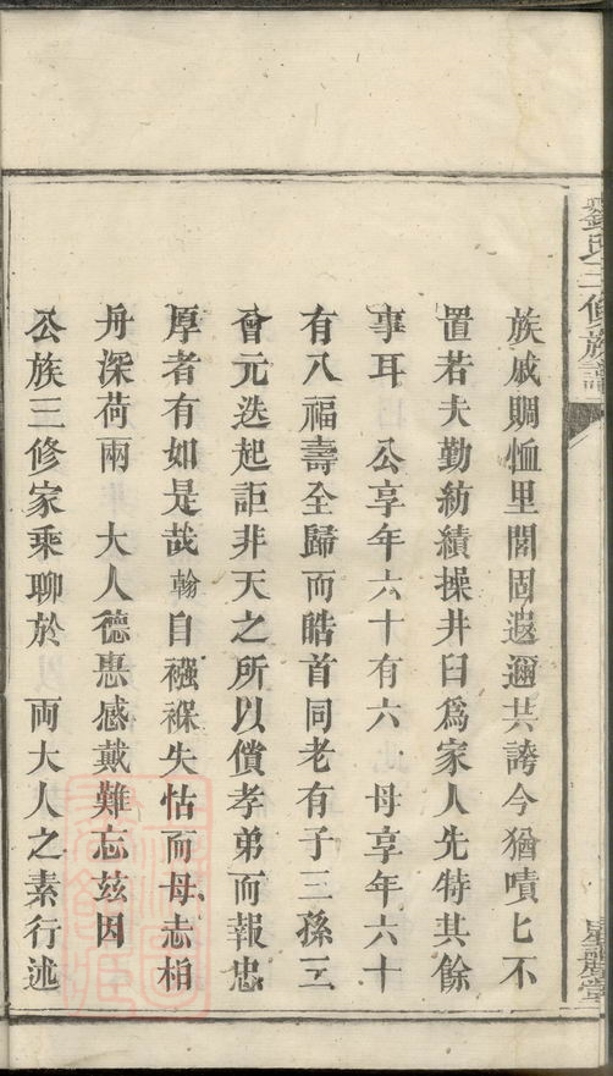 族戚賙恤里閭固遐邇共誇今猶嘖匕不
置若夫勤紡績操井臼爲家人先特其餘
事耳　公享年六十有六　母享年六十
有八福壽全歸而皓首同老有子三孫五
曾元迭起詎非天之所以償孝弟而報忠
厚者有如是哉翰自襁褓失怙而母志柏
舟深荷兩　大人德惠感戴難忘玆因
公族三修家乘聊於　兩大人之素行述
氏三修族譜